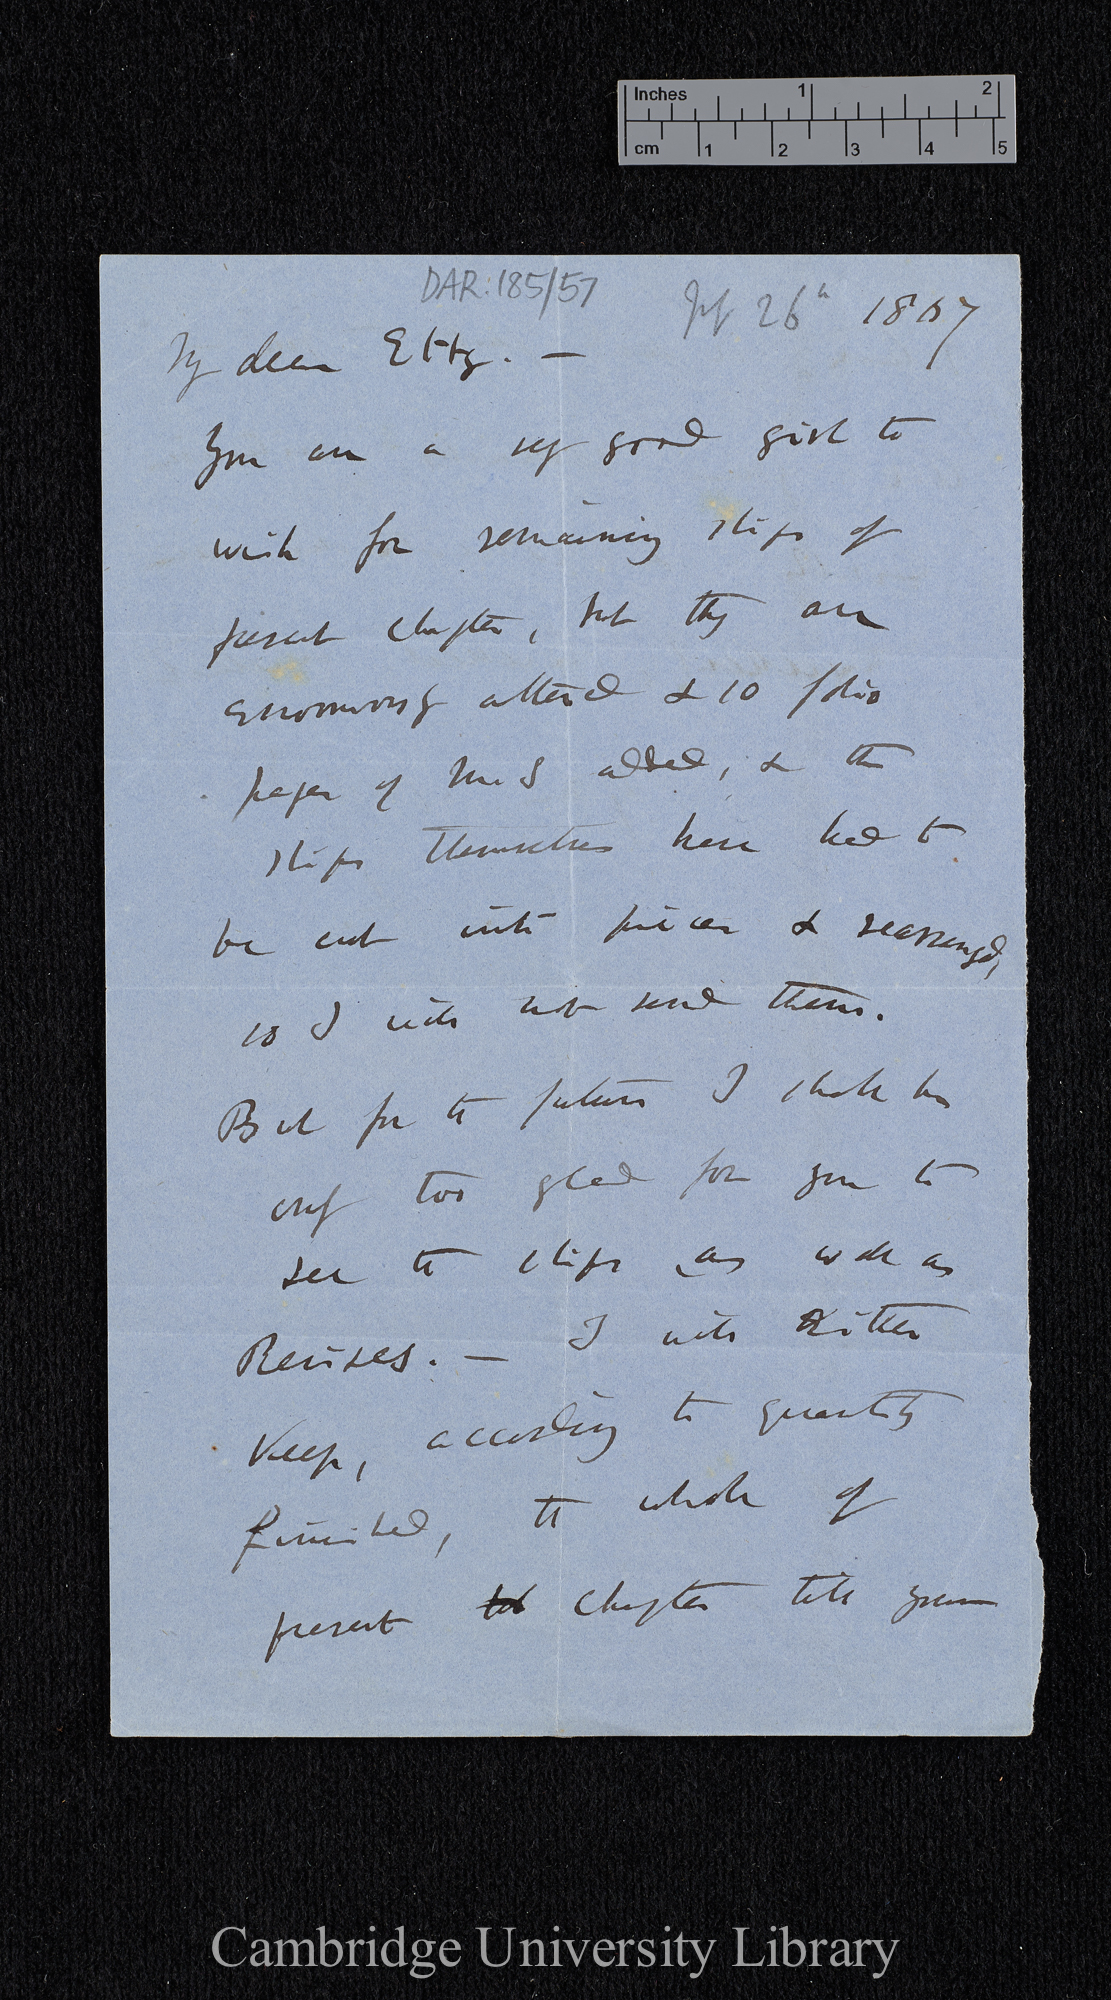 Inches 1 2
cm 1 2 3 4 5
DAR:185/57
July 26th 1867
My dear Etty. —
You are a very good girl to
wish for remaining slips of
present chapter, but they are
enormously altered & 10 folio
pages of M.S added, & the
slips themselves have had to
be cut into pieces & rearranged,
so I will not send them.
But for the future I shall be
only too glad for you to
see the slips as well as
Revises. — I will either
Keep, according to quantity
finished, the whole of
present chapter till your
Cambridge University Library